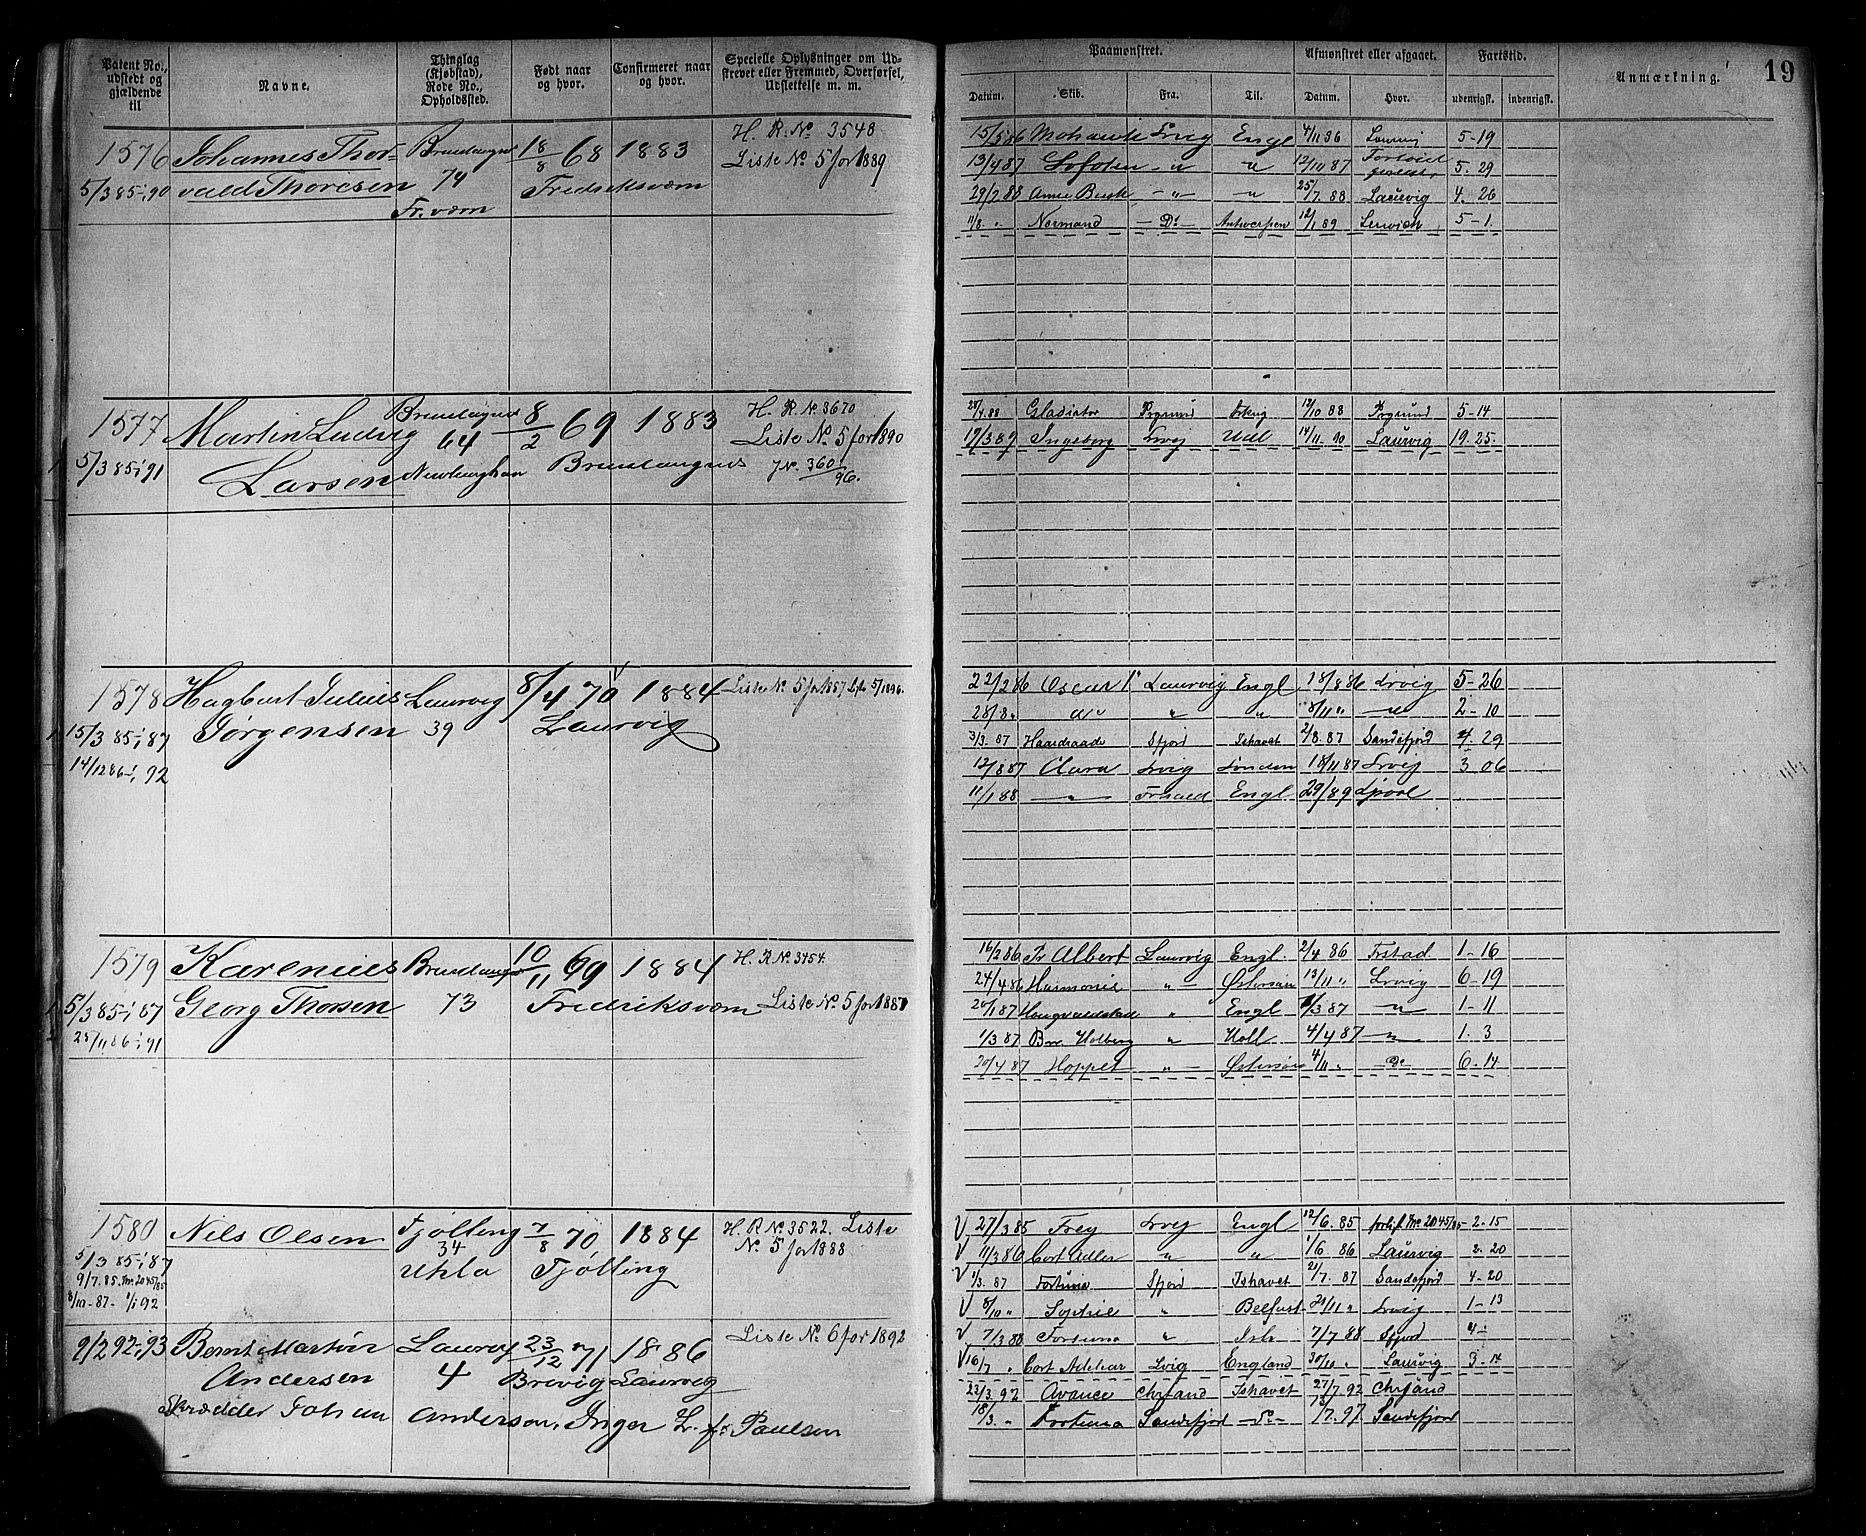 19
Patent No., udstedt og gjældende til
Navne.
Thinglag (Kjøbstad), Rode No., Opholdssted.
Født naar og hvor.
Confirmeret naar og hvor.
Specielle Oplysninger om Udskrevet eller Fremmed, Overførsel, Udslettelse m. m.
Paamønstret.
Afmønstret eller afgaaet.
Fartstid.
Anmærkning.
Datum. Skib. Fra. Til. Datum. Hvor. udenrigsk. indenrigsk.
1576 Johannes Thor- 18/8 68 1883 H. R. No 3548
Liste No 5 for 1889
5/3 85-; 90 vald Thoresen 74 Fredriksværn
Fr.værn
15/5 86 Mohawk Lrvig Engl 5-19
13/4 87 Lofoten - " " 12/11 87 5. 29
29/2 88 - " - " 25/7. 88 Laurvig 4. 26
11/8. " Normand - Do - Antwerpen 12/1 89 5-1.
1577 Martin Ludvig 8/2 69 1883 H. R. No 3670
64 Liste No 5 for 1890
5/3 85-; 91 Larsen
JNo 360/96.
Gladiator 12/10 88 5-14
19/3 89 Ingeborg 14/11. 90 Laurvig 19. 25.
1578 Hagbart Julius Laurvig 8/4 70 1884 Liste No 5 for 1887
15/3 85-; 87 Jørgensen 39 Laurvig
14/12 86-; 92
22/2 86 Oscar 1' Laurvig Engl 18/8 86 Lrvig 5-26
28/8 " do " " 8/11 " - " 2-10
3/3. 87 Haardraade Sfjord Ishavet 2/8. 87 Sandefjord 4. 29
12/8 87 Clara Lrvig London 18/11 87 Lrvig 3 06
11/1 88 - " - Frstad Engl 29/1 89 Lpool
1579 Karenius 10/11 69 1884 H. R No. 3454
5/3 85-; 87 Georg Thorsen 73 Fredriksværn Liste No. 5 for 1887
25/11 86-; 91
16/2 86 Pr Albert Laurvig Engl. 2/4 86 Frstad 1-16
24/4 86 Harmonie " - Østersøen 13/11 " Lrvig 6-19
20/1 87 " Engl /3 87 - " 1-11
1/3 87 Br. Holberg " Holl 4/4 87 - " - 1. 3
20/4 87 Hoppet " - Østersøen 4/11 . Do 6. 14
1580 Nils Olsen Tjølling 7/8 70 1884 H. R No 3522. Liste
34 No. 5 for 1888
5/3 85-; 87 Ukla Tjølling
9/7. 85. 2045/85
8/10-87- 1/1 92
V 27/3 85 Frey Lrvig Engl 12/6. 85 2045/85 2-15
V 11/3 86 Cort Adler " " 1/6 86 Laurvig 2. 20
V 1/3. 87 Fortuna Sfjord Ishavet 21/7. 87 Sandefjord 4-20
V 8/10 " Sophie " Belfast 21/11 " Lrvig 1-13
V 7/3 88 Fortuna " Ish 7/7 88 Sfjord 4-
V 16/7 " Cort Adelaar Lvig England 30/10 " Laurvig 3-14
9/2 92-; 93 Bernt Martin Laurvig 23/12 71 1886 Liste No. 6 for 1892
Andersen 4 Brevig Laurvig
Skrædder Johan Anderson, Inger L. f. Paulsen
23/3. 92 Avance Chrsand Ishavet 27/7. 92 Chrsand
18/3. " Fortuna Sandefjord - Do - /7. 97. Sandefjord